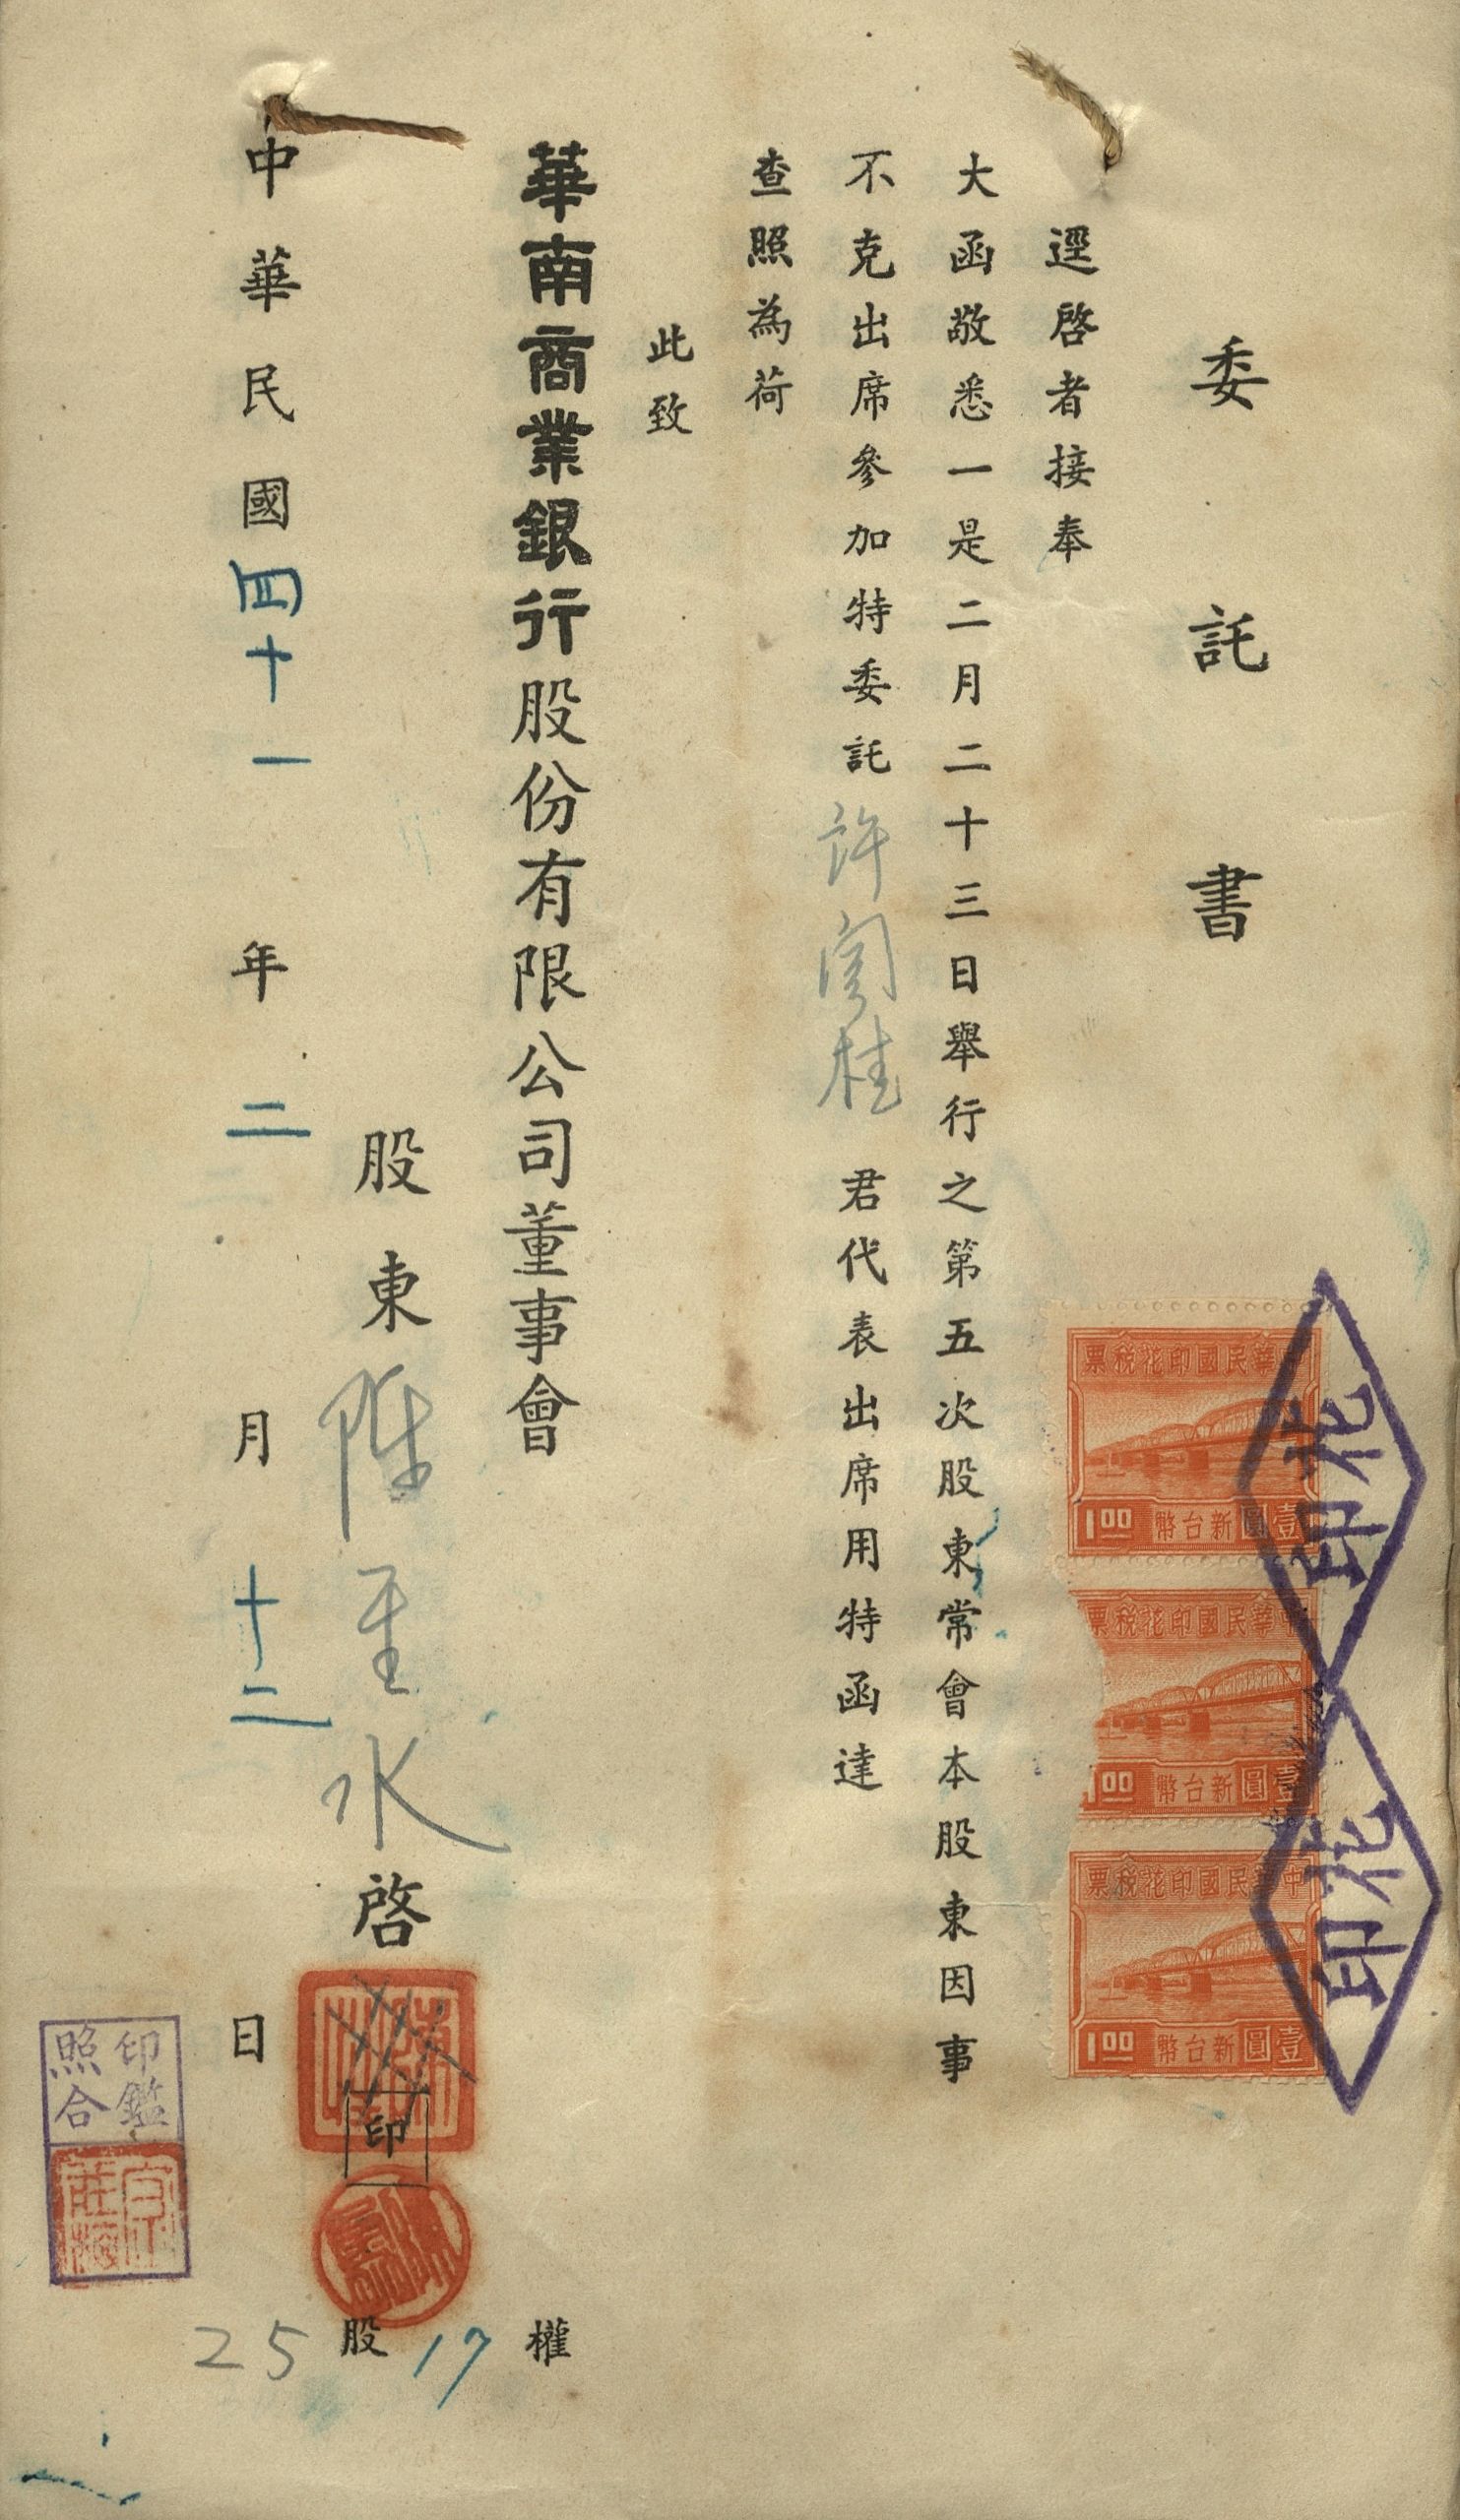 委託書
逕啓者接奉
大函敬悉一是二月二十三日舉行之第五次股東常會本股東因事
不克出席參加特委託許 桂君代表出席用特函達
查照為荷
此致
華南商業銀行股份有限公司董事會
股東陳 水啓
印
中華民國四十一年二月十二日
25股17權
印鑑
照合
中華民國印花稅票
壹圓新台幣
1.00
中華民國印花稅票
壹圓新台幣
1.00
中華民國印花稅票
壹圓新台幣
1.00
印花
印花